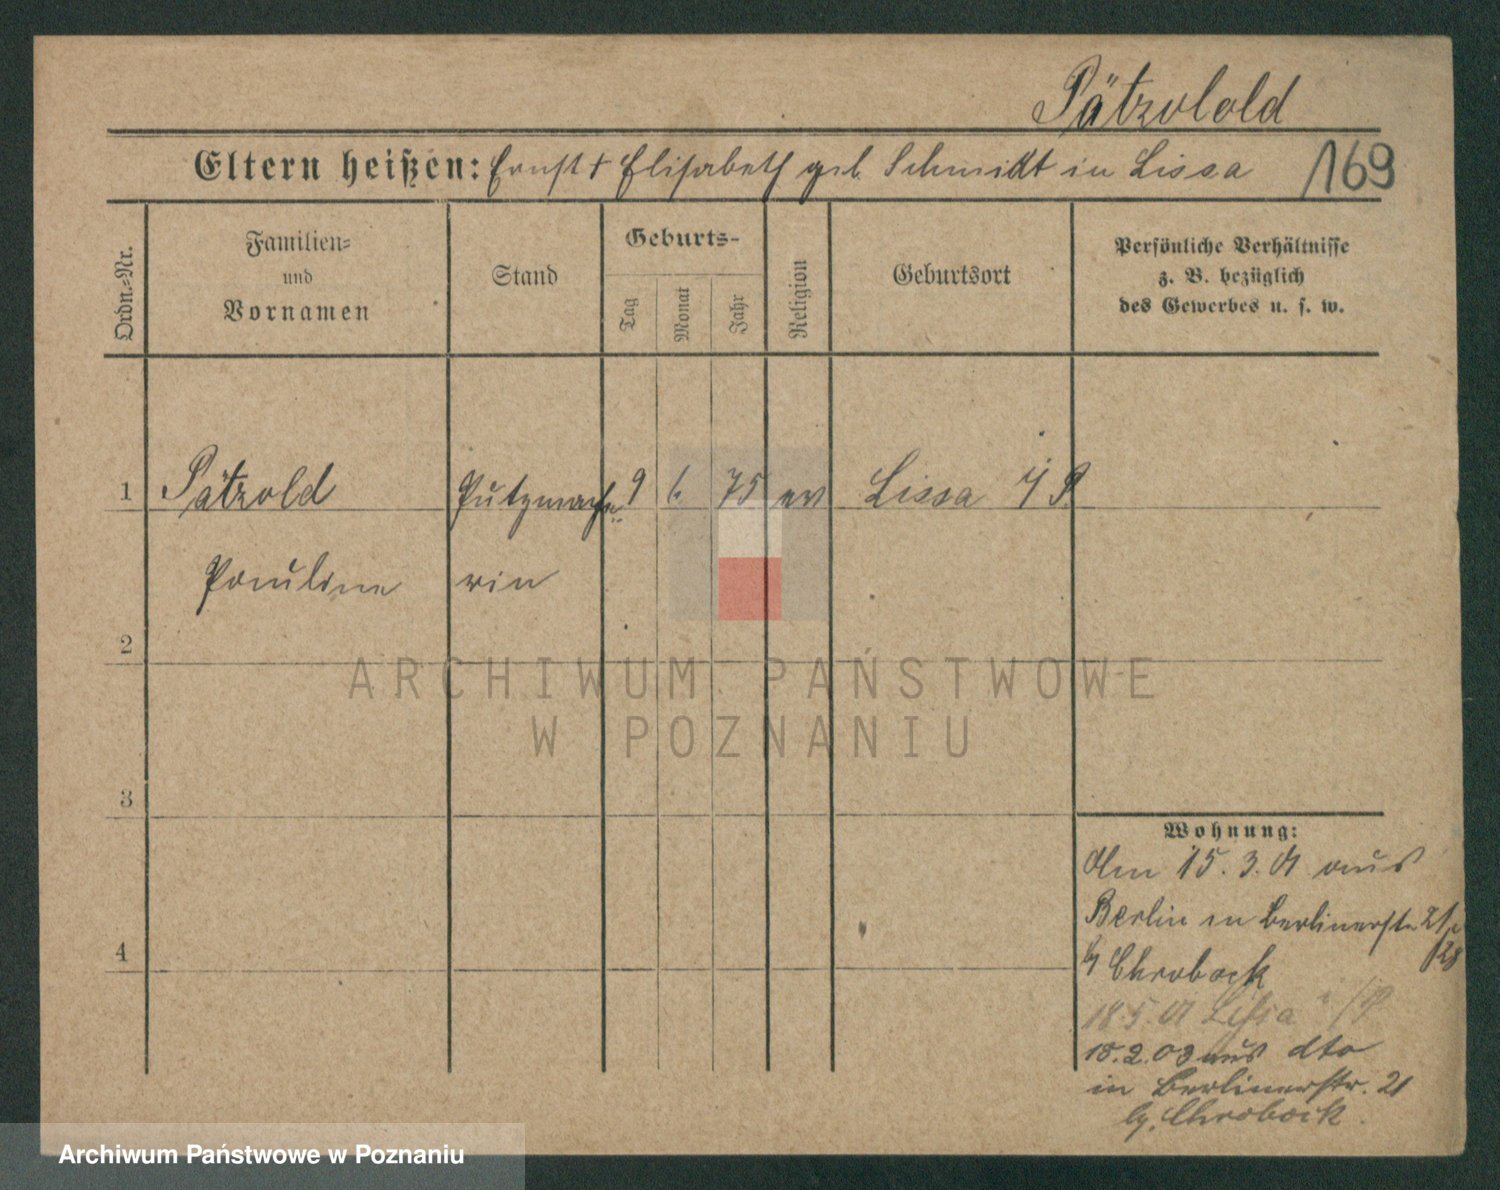 Pätzold
Eltern heißen: Ernst + Elisabeth geb. Schmidt in Lissa 169
Ordn.-Nr.
Familien-
und
Vornamen
Stand
Geburts-
Tag
Monat
Jahr
Religion
Geburtsort
Persönliche Verhältnisse
z. B. bezüglich
des Gewerbes u. s. w.
1 Pätzold Putzmache- 9 6. 75 ev Lissa i/P.
Pauline rin
2
3
4
Wohnung:
Am 15. 3. 01 aus
Berlin in Berlinerstr 21
b/ Chrobock
18.5.01 Lissa i/P
15.2.03 aus dto
in Berlinerstr. 21
b/. Chrobock.
ARCHIWUM PAŃSTWOWE
W POZNANIU
Archiwum Państwowe w Poznaniu